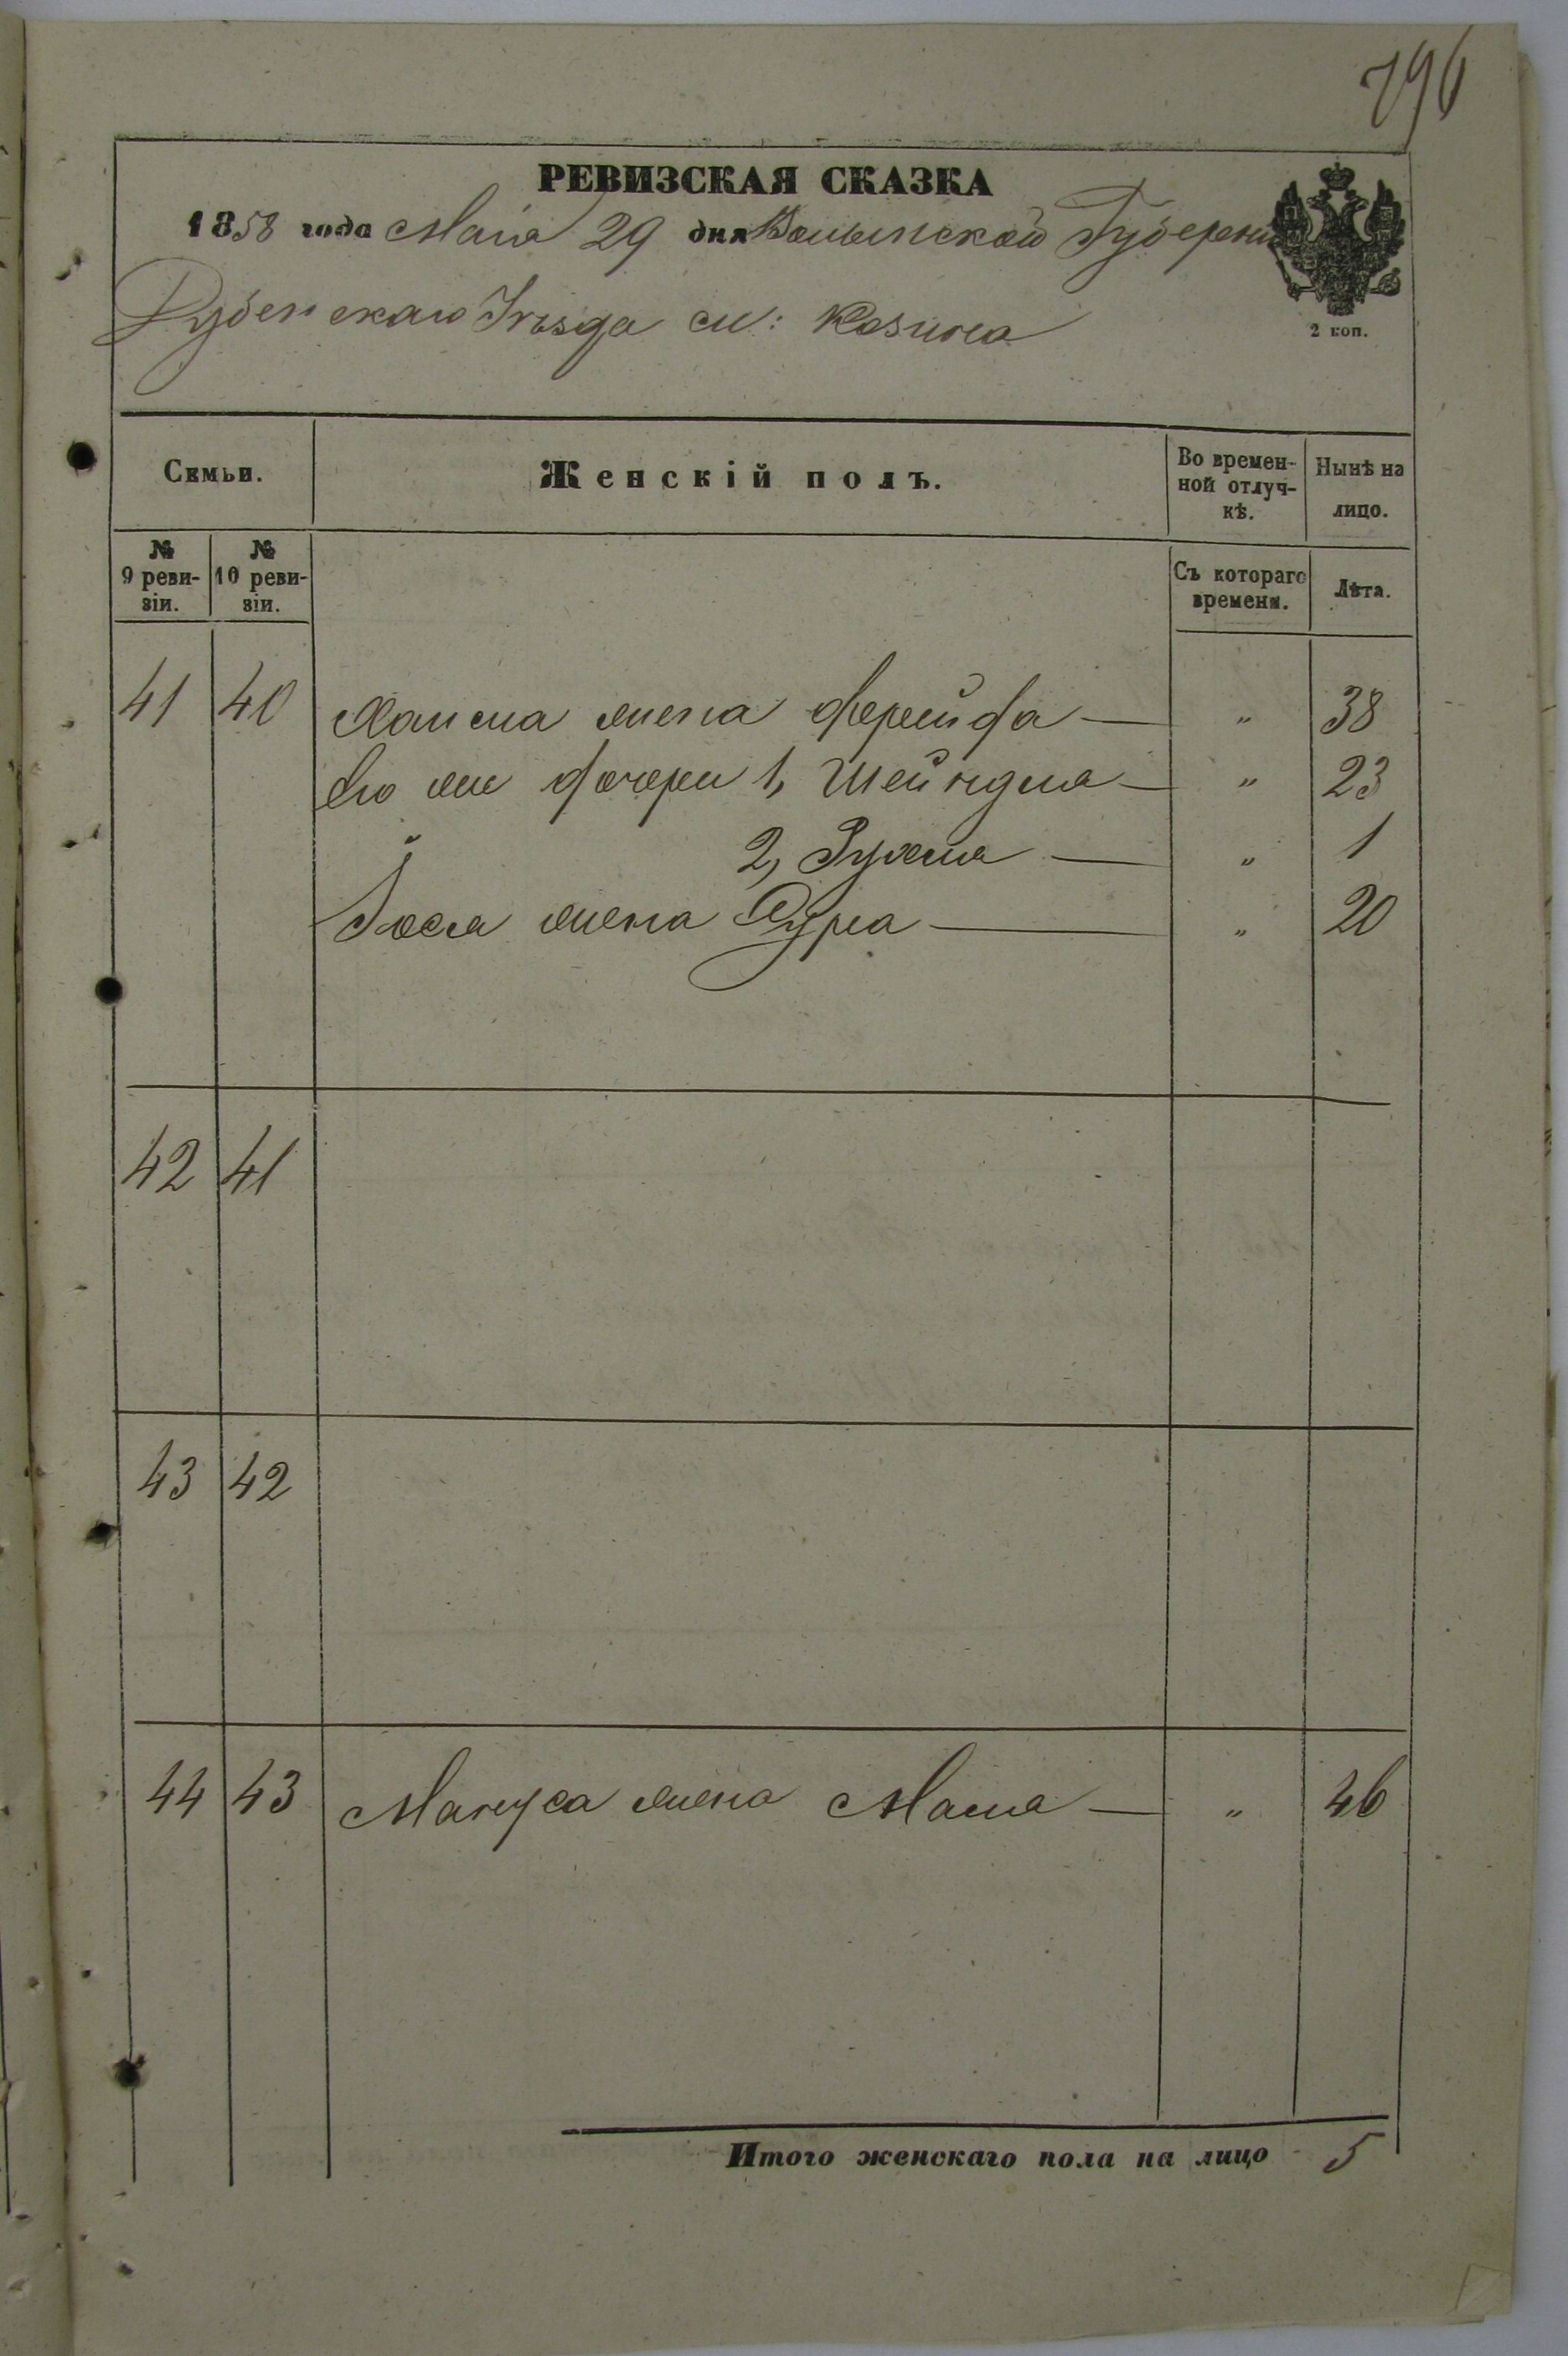 796
РЕВИЗСКАЯ СКАЗКА
1858 года Маія 29 дня Волынской Губерніи
2 коп.
Дубенскаго Уѣзда м: Козина
Семьи.
Женскій полъ.
Во временной отлучкѣ.
Нынѣ на лицо.
№ 9 ревизіи.
№ 10 ревизіи.
Съ котораго времени.
Лѣта.
41 40 Хаима жена Фрейда — " 38
Его же дочери 1, Шейндля — " 23
2, Рухля — " 1
Іося жена Сура — " 20
42 41
43 42
44 43 Мануса жена Маля — " 46
Итого женскаго пола на лицо 5